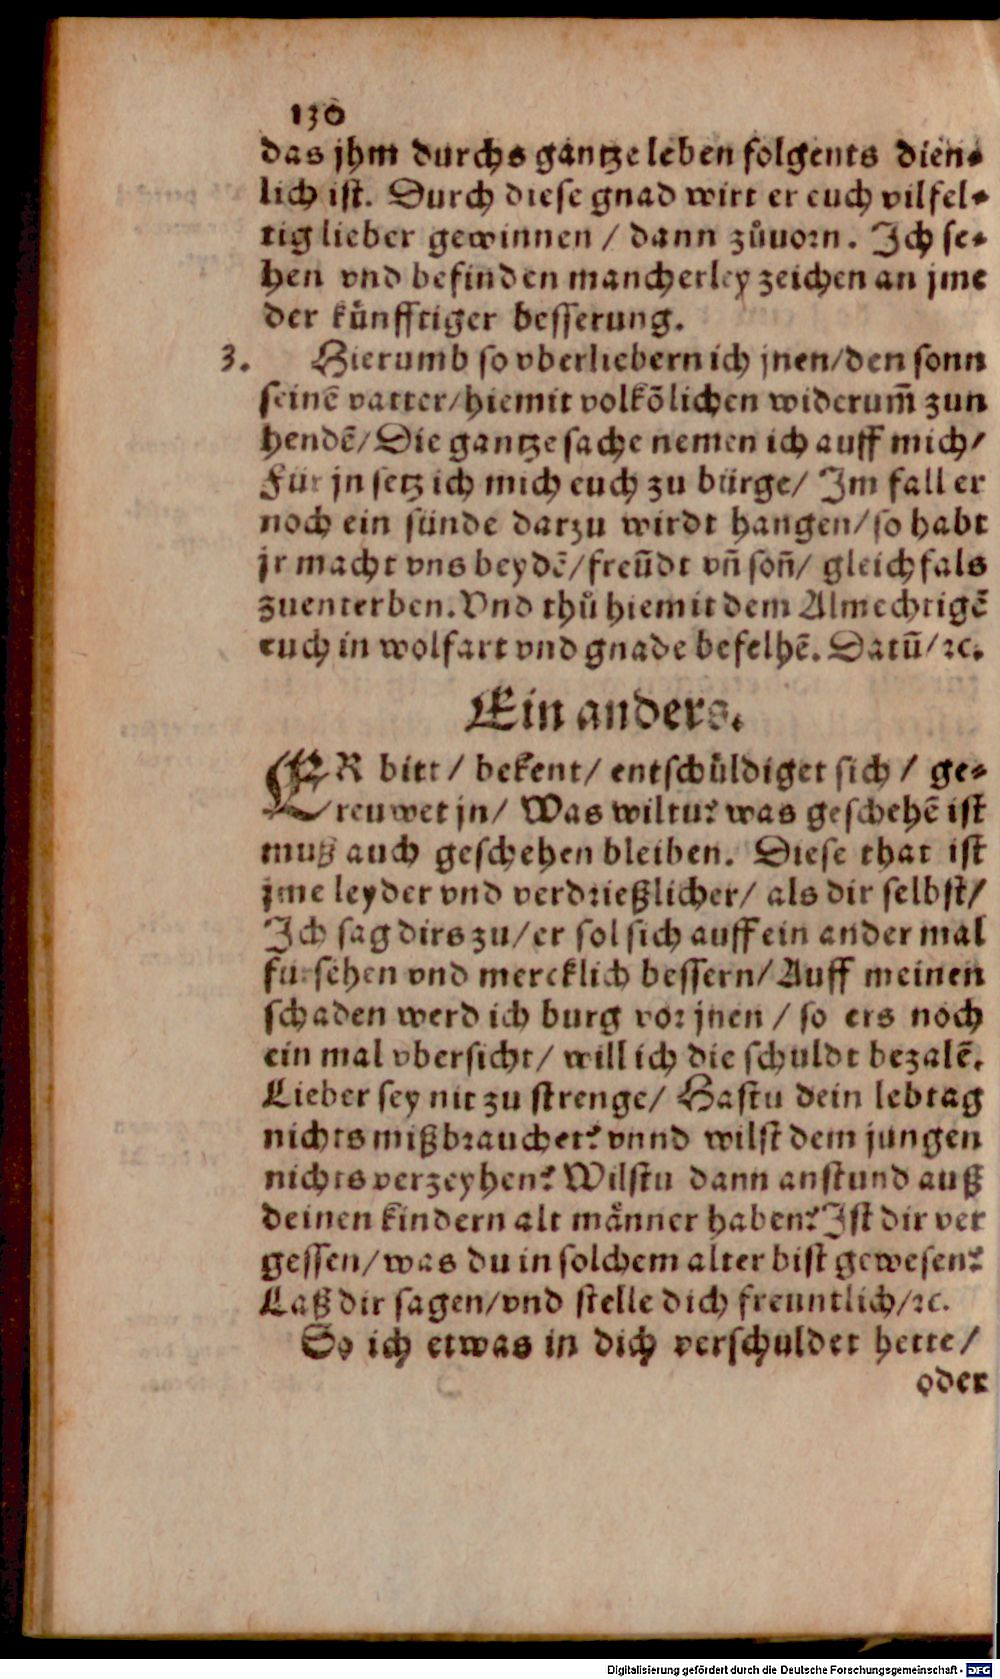 130
das jhm durchs gantze leben folgents dien⸗
lich ist. Durch diese gnad wirt er euch vilfel⸗
tig lieber gewinnen / dann zůuorn. Ich se⸗
hen vnd befinden mancherley zeichen an jme
der künfftiger besserung.
3. Hierumb so vberliebern ich jnen/den sonn
seinē vatter/hiemit volkōlichen widerum̄ zun
hendē/Die gantze sache nemen ich auff mich/
Für jn setz ich mich euch zu bürge/ Im fall er
noch ein sünde darzu wirdt hangen/so habt
jr macht vns beydē/freūdt vn̄ son̄/ gleichfals
zuenterben. Vnd thů hiemit dem Almechtigē
euch in wolfart vnd gnade befelhē. Datū/ꝛc.
Ein anders.
ER bitt / bekent/ entschüldiget sich / ge⸗
reuwet jn/ Was wiltu? was geschehē ist
muß auch geschehen bleiben. Diese that ist
jme leyder vnd verdrießlicher/ als dir selbst/
Ich sag dirs zu/er sol sich auff ein ander mal
fürsehen vnd mercklich bessern/Auff meinen
schaden werd ich burg vor jnen / so ers noch
ein mal vbersicht/ will ich die schuldt bezalē.
Lieber sey nit zu strenge/ Hastu dein lebtag
nichts mißbrauchet? vnnd wilst dem jungen
nichts verzeyhen? Wilstu dann anstund auß
deinen kindern alt männer haben? Ist dir ver
gessen/was du in solchem alter bist gewesen?
Laß dir sagen/vnd stelle dich freuntlich/ꝛc.
So ich etwas in dich verschuldet hette/
oder
Digitalisierung gefördert durch die Deutsche Forschungsgemeinschaft - DFG